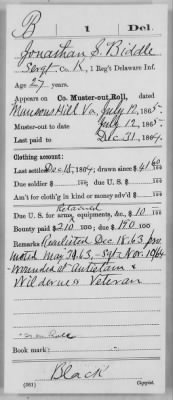 B | 1 | Del.
Jonathan S. Biddle
Sergt, Co. K, 1 Reg't Delaware Inf.
Age 27 years.
Appears on Co. Muster-out Roll, dated
Munsons Hill Va, July 12, 1865.
Muster-out to date July 12, 1865.
Last paid to Dec 31, 1864.
Clothing account:
Last settled Dec 18, 1864; drawn since $ 41 60/100
Due soldier $ 100; due U. S. $ 100
Am't for cloth'g in kind or money adv'd $ 100
Retained
Due U. S. for arms, equipments, &c., $ 10 100
Bounty paid $ 210 100; due $ 190 100
Remarks Reenlisted Dec. 18. 63, pro
moted May 63, - Sgt Nov. 1964
- wounded at Antietam &
Wilderness Veteran
Book mark:
Black
(361) Copyist.